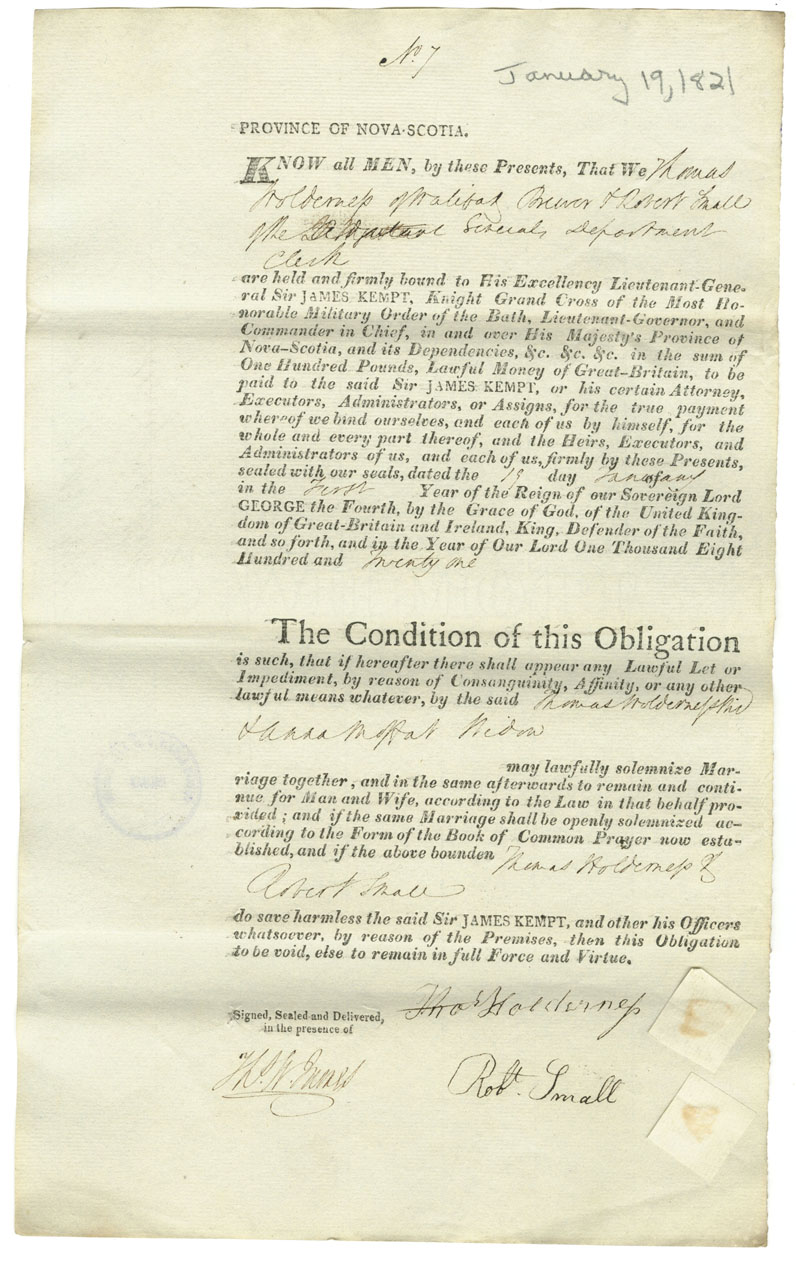 No. 7
January 19, 1821
PROVINCE OF NOVA-SCOTIA.
KNOW all MEN, by these Presents, That We Thomas
Holderness of Halifax Brewer & Robert Small
of the Generals Department
Clerk
are held and firmly bound to His Excellency Lieutenant-Gene-
ral Sir JAMES KEMPT, Knight Grand Cross of the Most Ho-
norable Military Order of the Bath, Lieutenant-Governor, and
Commander in Chief, in and over His Majesty's Province of
Nova-Scotia, and its Dependencies, &c. &c. &c. in the sum of
One Hundred Pounds, Lawful Money of Great-Britain, to be
paid to the said Sir JAMES KEMPT, or his certain Attorney,
Executors, Administrators, or Assigns, for the true payment
whereof we bind ourselves, and each of us by himself, for the
whole and every part thereof, and the Heirs, Executors, and
Administrators of us, and each of us, firmly by these Presents,
sealed with our seals, dated the 19 day January
in the First Year of the Reign of our Sovereign Lord
GEORGE the Fourth, by the Grace of God, of the United King-
dom of Great-Britain and Ireland, King, Defender of the Faith,
and so forth, and in the Year of Our Lord One Thousand Eight
Hundred and Twenty one
The Condition of this Obligation
is such, that if hereafter there shall appear any Lawful Let or
Impediment, by reason of Consanguinity, Affinity, or any other
lawful means whatever, by the said Thomas Holderness
& Anna Moffat Widow
may lawfully solemnize Mar-
riage together, and in the same afterwards to remain and conti-
nue for Man and Wife, according to the Law in that behalf pro-
vided; and if the same Marriage shall be openly solemnized ac-
cording to the Form of the Book of Common Prayer now esta-
blished, and if the above bounden Thomas Holderness &
Robert Small
do save harmless the said Sir JAMES KEMPT, and other his Officers
whatsoever, by reason of the Premises, then this Obligation
to be void, else to remain in full Force and Virtue.
Signed, Sealed and Delivered,
in the presence of
Thos Holderness
Robt. Small